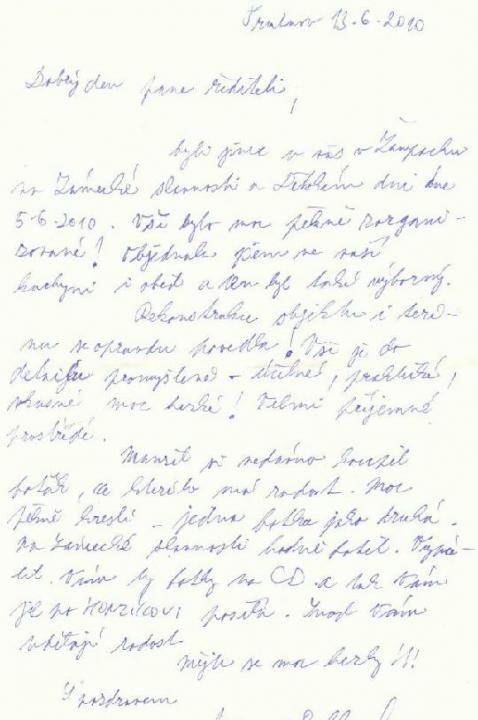 Trutnov 13.6.2010
Dobrý den pane řediteli,
byli jsme u vás v Žampachu
na Zámecké slavnosti a dne
5.6.2010. Vše bylo moc pěkně zorgani-
zované! Objednala jsem ve vaší
kuchyni i oběd a ten byl také výborný.
Rekonstrukce objektu i teré-
nu se opravdu povedla! Vše je do
detailu promyšlené - účelné, praktické,
vkusné moc hezké! Velmi příjemné
prostředí.
Manžel si nedávno koupil
foťák, ze kterého má radost. Moc
pěkně kreslí - jedna fotka jako druhá.
Na Zámecké slavnosti hodně fotil. Vypá-
lil Vám ty fotky na CD a tak Vám
je posílá. Snad Vám
udělají radost
Mějte se moc hezky !!!
S pozdravem